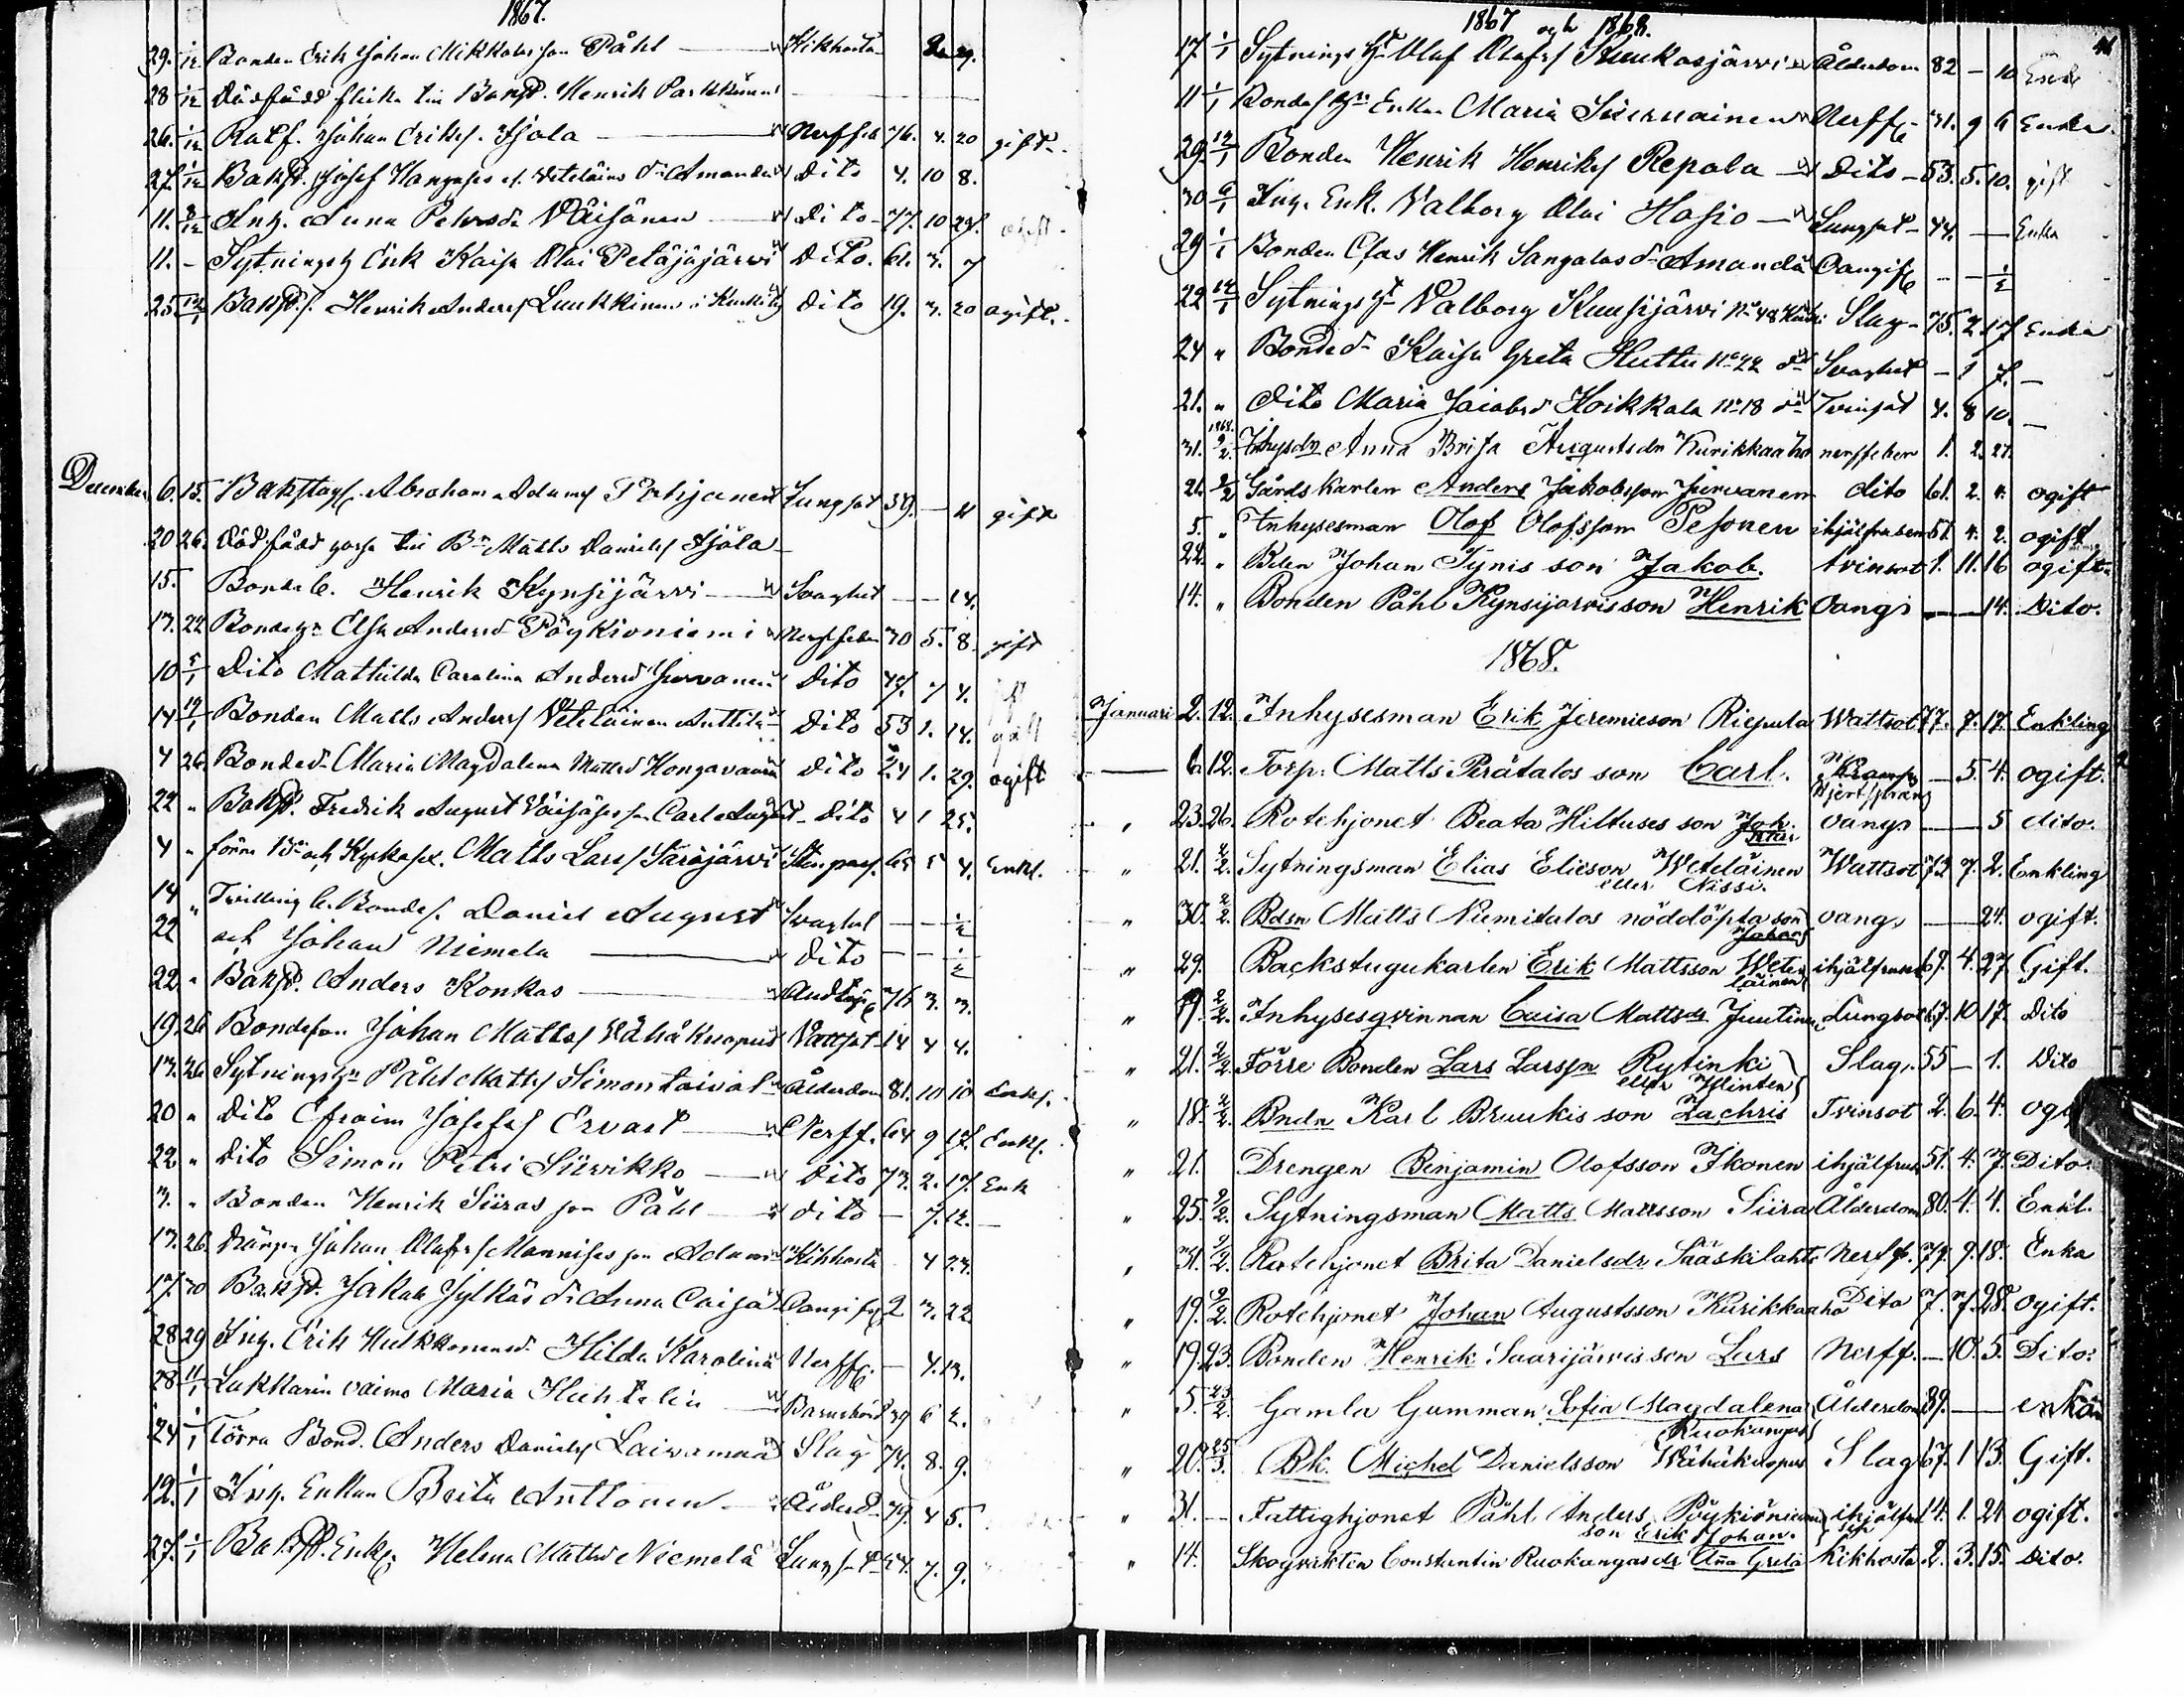 1867.
29. 1/12 Bonden Erik Johan Mikkolas son Påhl Kikhosta 2 29.
28 1/12 Dödfödd flicka till Bakst. Henrik Parkkinen
26. 1/12 Rotf. Johan Eriks. Ajola Nerffeb 76. 4. 20 gift.
27. 1/12 Bakst. Josef Hangases el. Veteläins dr Amanda Dito 4. 10 8.
11. 8/12 Inh. Anna Petersdr Väisänen Dito 77. 10 29. ogift.
11. - Sytningsh Enk Kaisa Olai Petäjäjärvi Dito. 61. 3. 7
25 12/1 Bakst. s. Henrik Anders Luukkinen Dito 19. 3. 20 ogift.
December 6. 15. Bakstags. Abraham Adams Pohjanen Lungsot 39. — 11 gift
20 26. Dödfödd gosse till Bn Matts Daniels Ajola
15. Bonde b. Henrik Kynsijärvi Svaghet — — 14.
17. 22 Bondeh. Elsa Andersd Pöykiöniemi Nerffeber 30 5. 8. gift
10 5/1 Dito Mathilda Carolina Andersd Jurvanen Dito 47. 7 4.
14 19/1 Bonden Matts Anders Veteläinen Anttila Dito 53 1. 14. gift
4 26. Bonded. Maria Magdalena Mattsd Hongavaara Dito 24 1. 29. ogift
22 " Bakst. Fredrik August Väisäses son Carl August Dito 4 1 25.
4 " förre Bn och Kyrkosex. Matts Lars Säräjärvi 65 5 4. Enkl.
14 " Tvilling b. Bondes. Daniel August Svaghet — — 1/2
22 och Johan Niemelä Dito — — 1/2
22 " Bakst. Anders Konkas 76 3. 3.
19. 26 Bondeson Johan Matts Vähäkuopus Vattsot 14 4 4.
17. 26 Sytningshn Påhl Matts Simontaival Ålderdom 81. 10 10 Enkl.
20 " Dito Efraim Josefs Ervast Nerff. 64 9 17. Enkl.
22 " Dito Simon Petri Siivikko Dito 73. 2. 17. Enk
3. " Bonden Henrik Siiras son Påhl Dito — 7. 12. —
17. 26. Drängen Johan Olofss Mannises son Adam Kikhosta 4 23.
17. 30 Bakst. Jakob Jylkäs dr Anna Caisa Oangifv. 2 3. 22
28 29 Inh. Erik Hukkanens dr Hilda Karolina Nerff. — 4. 13.
28 11/1 Lukkarin vaimo Maria Huhtelin Barnsbörd 39 6 2.
24 1/1 Förra Bond. Anders Daniels Laivamaa Slag 74. 8. 9.
12. 1/1 Inh. Enkan Brita Anttonen Ålderd. 79. 4 5.
27. 1/1 Bakst. Enk. Helena Mattsd Niemelä Lungsot 54. 7. 9.
1867 och 1868.
46
17 1/1 Sytnings Hn Olof Olofs Kuukasjärvi Ålderdom 82 — 10 Enk
11 1/1 Bondes Hn Enkan Maria Nerff. 31. 9 6 Enka.
29. 12/1 Bonden Henrik Henriks Repola Dito 53. 5. 10. gift
30 6/1 Inh. Enk. Valborg Olai Hosio Lungsot 44. — — Enka
29 1/1 Bonden Clas Henrik Sangalas dr Amanda Oangifv. — — 1/2
22 12/1 Sytnings Hn Valborg Kuusijärvi No 48 Slag 75. 2. 17. Enka
24 " Bonded. Kaisa Greta Huttu No 22 Svaghet — 1 7. —
21. " Dito Maria Jacobsd Hoikkala No 18 Tvinsot 4. 8 10. —
1868.
31. 9/2. Inhysdr Anna Brita Augustsdr Kurikkaaho nerffeber 1. 2. 27.
21. 9/2 Gårdskarlen Anders Jakobsson Jurvanen dito 61. 2. 4. ogift
5. " Inhysesman Olof Olofsson Pesonen ihjälfrusen 51. 4. 2. ogift
22. " Bden Johan Tynis son Jakob. tvinsot 1. 11. 16 ogift.
14. " Bonden Påhl Kynsijärvis son Henrik Oangi — — 14. Dito.
1868.
Januari 2. 12. Inhysesman Erik Jeremieson Riepula Wattsot 77. 7. 17. Enkling
— 6. 12. Torp. Matts Perätalos son Carl. Kramp — 5. 4. ogift.
" 23. 26. Rotehjonet Beata Hiltuses son Joh. oangi — — 5 dito.
" 21. 2/2. Sytningsman Elias Elieson Weteläinen Wattsot 72 7. 2. Enkling
eller Nissi.
" 30. 2/2. Bdsn Matts Niemitalos nöddöpta son oang. — — 24. ogift.
Johan
" 29. Backstugukarlen Erik Mattsson Wete ihjälfrusen 69. 4. 27 Gift.
läinen
" 19. 2/2. Inhysesqvinnan Caisa Mattsdr Juutinen Lungsot 67. 10 17. Dito
" 21. 2/2. Förre Bonden Lars Larsson Rytinki Slag. 55 — 1. Dito
" 18. 2/2. Bndn Karl Bruukis son Zachris Tvinsot 2. 6. 4.
" 21. Drengen Benjamin Olofsson Ikonen ihjälfrus 51. 4. 7. Dito
" 25. 9/2. Sytningsman Matts Mattsson Siira Ålderdom 80. 4. 4. Enkl.
" 31. 9/2. Rotehjonet Brita Danielsdr Sääskilahti Nerff. 79. 9. 18. Enka
" 19. 9/2. Rotehjonet Johan Augustsson Kurikkaaho Dito 7. 7. 28. ogift.
" 19. 23. Bonden Henrik Saarijärvis son Lars Nerff. — 10. 5. Dito.
" 5. 23/2. Gamla Gumman Sofia Magdalena Ålderdom 89. — — enka
Ruokangas
" 20. 25/3. Bk. Michel Danielsson Wähäkuopus Slag 67. 1 13. Gift.
" 31. — Fattighjonet Påhl Anders Pöykiöniemi ihjälfru 14. 1. 21 ogift.
son Erik Johan. sen
" 14. Skogvakten Constantin Ruokangas dr Aña Greta Kikhosta 2. 3. 15. Dito.